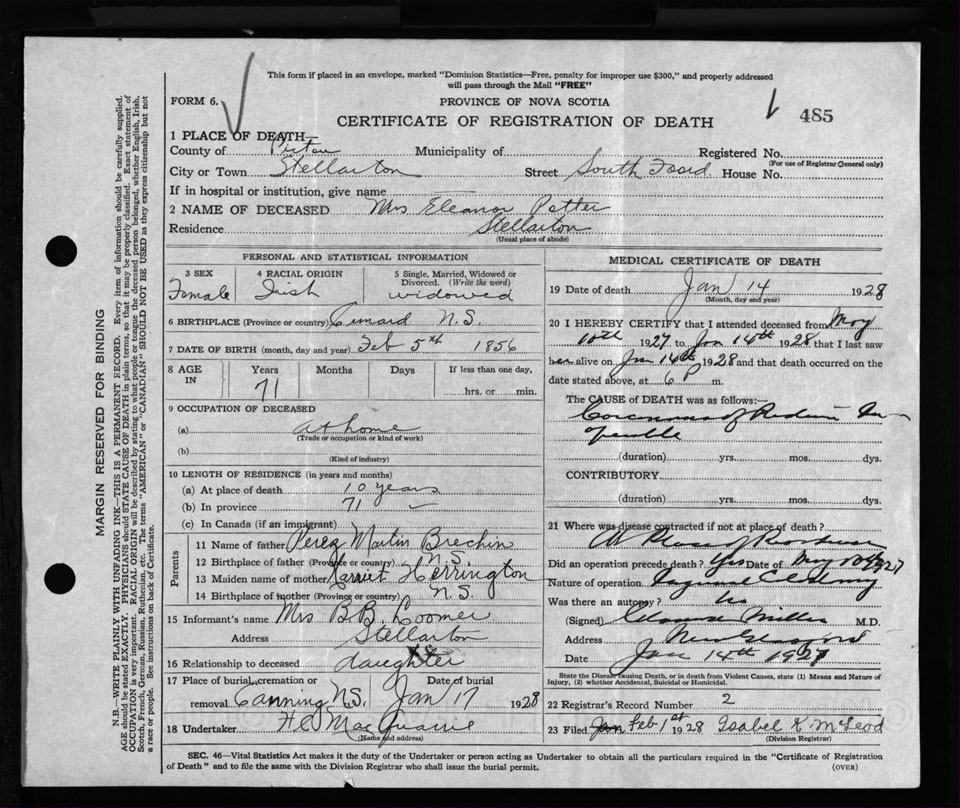 This form if placed in an envelope, marked "Dominion Statistics—Free, penalty for improper use $300," and properly addressed
will pass through the Mail "FREE"
FORM 6.
PROVINCE OF NOVA SCOTIA
CERTIFICATE OF REGISTRATION OF DEATH
485
1 PLACE OF DEATH—
County of Pictou Municipality of Registered No.
(For use of Registrar General only)
City or Town Stellarton Street South Foord House No.
If in hospital or institution, give name
2 NAME OF DECEASED Mrs Eleanor Potter
Residence Stellarton
(Usual place of abode)
PERSONAL AND STATISTICAL INFORMATION
3 SEX Female
4 RACIAL ORIGIN Irish
5 Single, Married, Widowed or
Divorced. (Write the word)
widowed
6 BIRTHPLACE (Province or country) N.S.
7 DATE OF BIRTH (month, day and year) Feb 5th 1856
8 AGE IN
Years 71
Months
Days
If less than one day,
hrs. or min.
9 OCCUPATION OF DECEASED
(a) at home
(Trade or occupation or kind of work)
(b)
(Kind of industry)
10 LENGTH OF RESIDENCE (in years and months)
(a) At place of death 10 years
(b) In province 71 —
(c) In Canada (if an immigrant)
Parents
11 Name of father Perez Martin Brechin
12 Birthplace of father (Province or country) N.S.
13 Maiden name of mother Harriet Herrington
14 Birthplace of mother (Province or country) N.S.
15 Informant's name Mrs B.B. Coomer
Address Stellarton
16 Relationship to deceased daughter
17 Place of burial, cremation or
removal Canning N.S.
Date of burial
Jan 17 1928
18 Undertaker H.C. MacQuarrie
(Name and address)
MEDICAL CERTIFICATE OF DEATH
19 Date of death Jan 14 1928
(Month, day and year)
20 I HEREBY CERTIFY that I attended deceased from May
10th 1927 to Jan 14th 1928 that I last saw
her alive on Jan 14th 1928 and that death occurred on the
date stated above, at 6 P m.
The CAUSE OF DEATH was as follows:—
(duration) yrs. mos. dys.
CONTRIBUTORY
(duration) yrs. mos. dys.
21 Where was disease contracted if not at place of death?
At Place of
Did an operation precede death? Yes Date of May 1927
Nature of operation
Was there an autopsy? No
(Signed) Miller M.D.
Address New Glasgow
Date Jan 14th 1927
State the Disease causing Death, or in death from Violent Causes, state (1) Means and Nature of
Injury, (2) whether Accidental, Suicidal or Homicidal.
22 Registrar's Record Number 2
23 Filed Feb 1st 1928 Isabel K. McLeod
(Division Registrar)
SEC. 46—Vital Statistics Act makes it the duty of the Undertaker or person acting as Undertaker to obtain all the particulars required in the "Certificate of Registration
of Death" and to file the same with the Division Registrar who shall issue the burial permit.
(OVER)
MARGIN RESERVED FOR BINDING
N.B.—WRITE PLAINLY WITH UNFADING INK—THIS IS A PERMANENT RECORD. Every item of information should be carefully supplied.
AGE should be stated EXACTLY. PHYSICIANS should STATE CAUSE OF DEATH in plain terms, so that it may be properly classified. Exact statement of
OCCUPATION is very important. RACIAL ORIGIN will be described by stating to what people or tongue the deceased person belonged, whether English, Irish,
Scotch, French, German, Russian, Ruthenian, etc. The terms "AMERICAN" or "CANADIAN" SHOULD NOT BE USED as they express citizenship but not
a race or people. See instructions on back of Certificate.